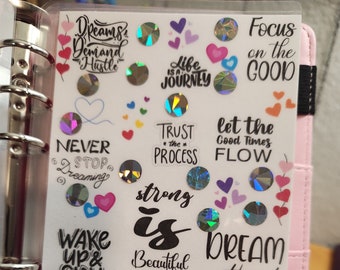 Dreams
Demand
Hustle
Life
IS A
JOURNEY
Focus
on the
GOOD
NEVER
STOP
Dreaming
TRUST
THE
PROCESS
let the
Good Times
FLOW
strong
is
Beautiful
WAKE
UP &
DREAM